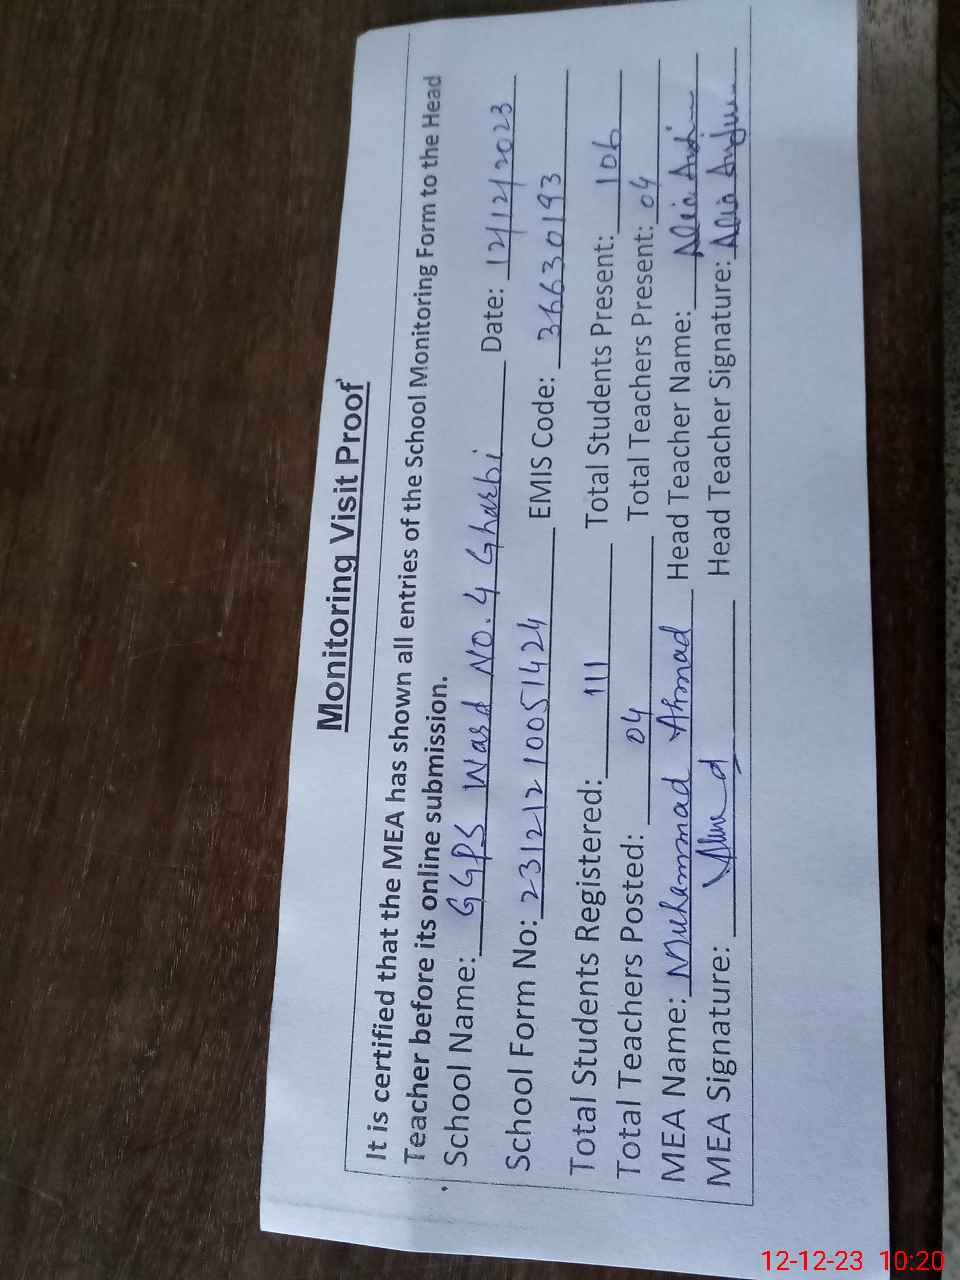 Monitoring Visit Proof
It is certified that the MEA has shown all entries of the School Monitoring Form to the Head
Teacher before its online submission.
School Name: GGPS Ward No. 4 Gharbi Date: 12/12/2023
School Form No: 231212 10051424 EMIS Code: 36630193
Total Students Registered: 111 Total Students Present: 106
Total Teachers Posted: 04 Total Teachers Present: 04
MEA Name: Muhammad Ahmad Head Teacher Name: Alia
MEA Signature: Head Teacher Signature: Alia Anjum
12-12-23 10:20